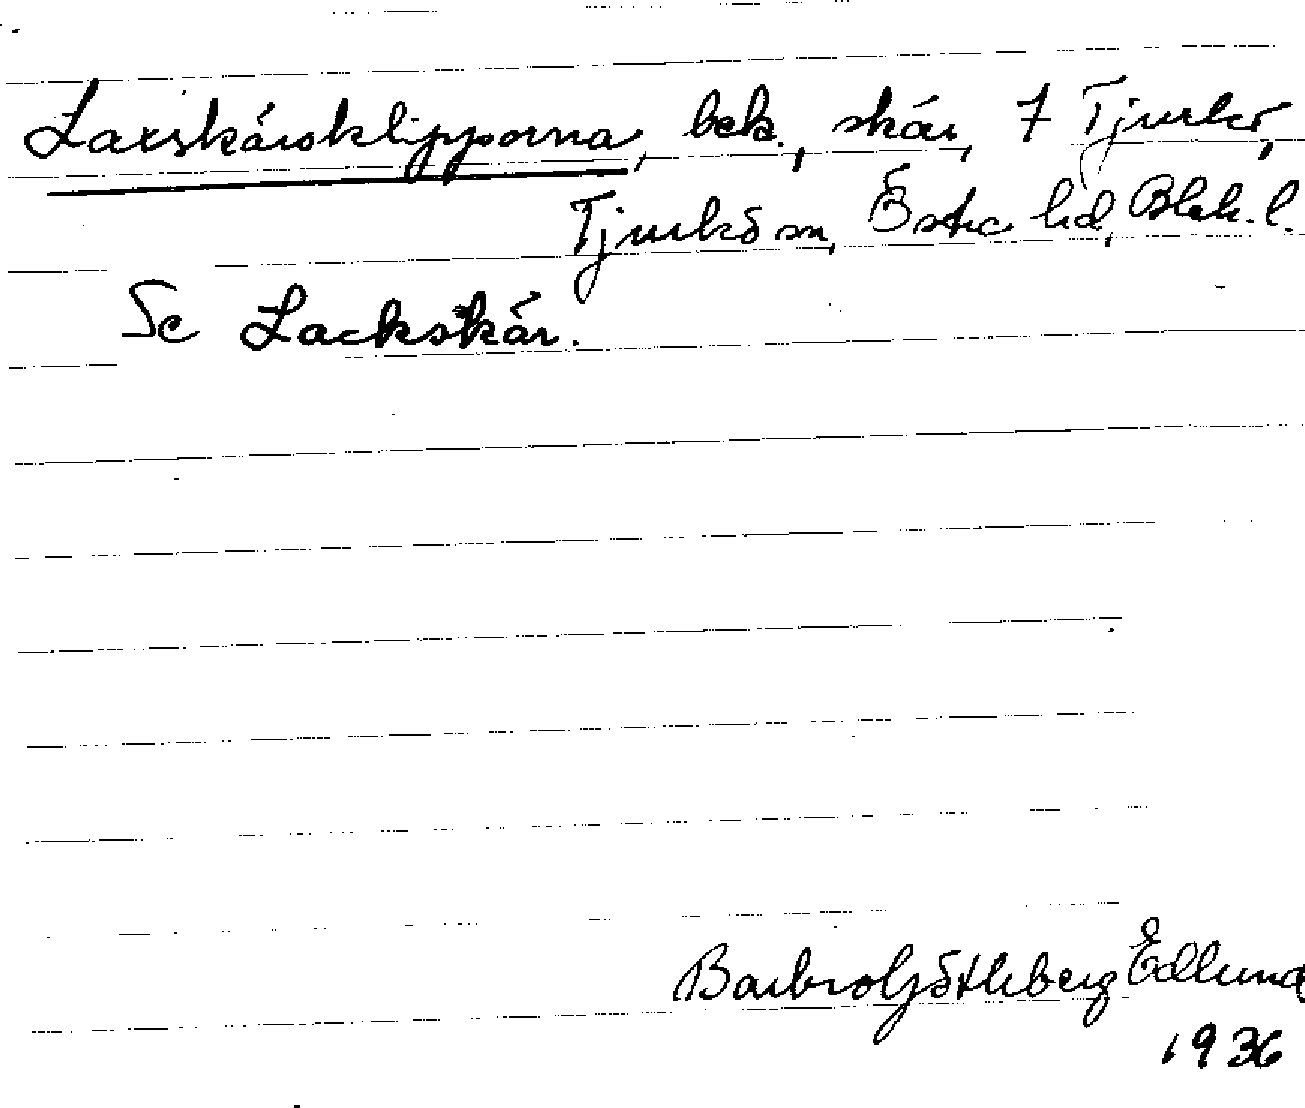 Laxskärsklipporna, bek., skär, 7 Tjurkö,
Tjurkö sn, Östra hd, Blek. l.
Se Lackskär.
Barbro Götheberg Edlund
1936